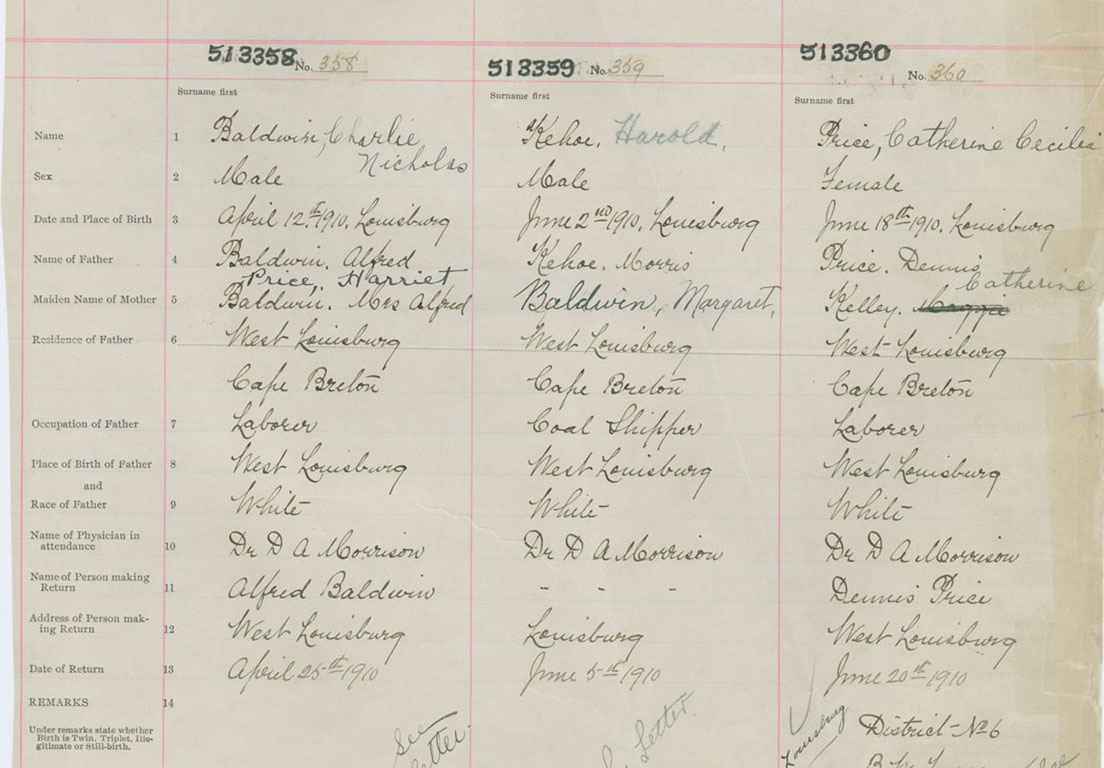 513358 No. 358 513359 No. 359 513360 No. 360
Surname first Surname first Surname first
Name 1 Baldwin, Charlie Nicholas Kehoe. Harold. Price, Catherine Cecilia
Sex 2 Male Male Female
Date and Place of Birth 3 April 12th 1910. Louisburg June 2nd 1910. Louisburg June 18th 1910. Louisburg
Name of Father 4 Baldwin. Alfred Kehoe. Morris Price. Dennis
Price, Harriet Catherine
Maiden Name of Mother 5 Baldwin. Mrs Alfred Baldwin, Margaret, Kelley. Maggie
Residence of Father 6 West Louisburg West Louisburg West Louisburg
Cape Breton Cape Breton Cape Breton
Occupation of Father 7 Laborer Coal Shipper Laborer
Place of Birth of Father 8 West Louisburg West Louisburg West Louisburg
and
Race of Father 9 White White White
Name of Physician in
attendance 10 Dr D A Morrison Dr D A Morrison Dr D A Morrison
Name of Person making
Return 11 Alfred Baldwin - - - Dennis Price
Address of Person mak-
ing Return 12 West Louisburg Louisburg West Louisburg
Date of Return 13 April 25th 1910 June 5th 1910 June 20th 1910
REMARKS 14
Under remarks state whether
Birth is Twin. Triplet. Ille-
gitimate or Still-birth.
See
Letter
Letter.
Louisburg
District No 6